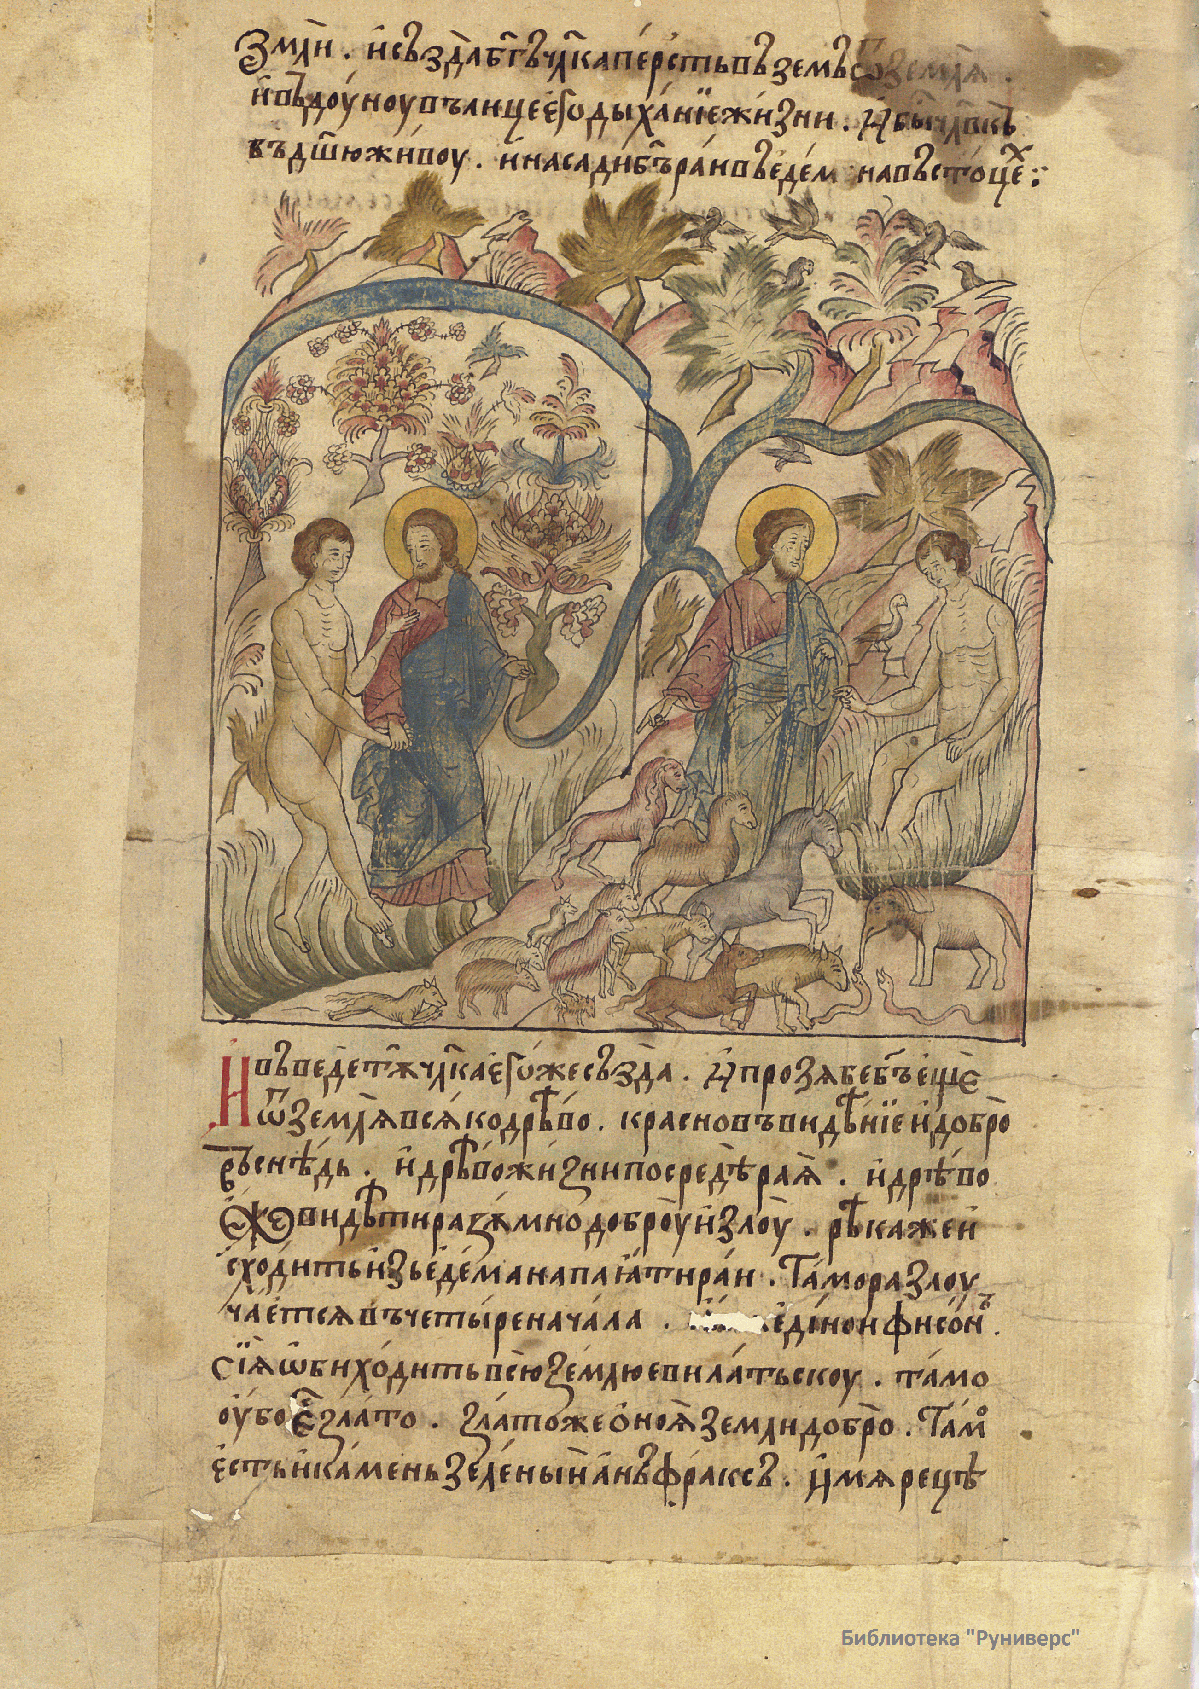 Земли . и създа бг҃ъ чл҃ка персть въземъ ѿ земля .
и въдоуноу въ лице его дыханїе жизни . И бы чл҃вкъ
въ дш҃ю живоу . и насади бг҃ъ раи въ едем на въстоцех :
И въведе т꙼ꙋ чл҃ка егоже създа . И прозябе бг҃ъ еще
ѿ земля всяко дрѣво . красно въ видѣнїе и добро
въ снѣдь . и дрѣво жизни посредѣ рая . и дрѣво
еже видѣти разꙋмно доброу и злоу . рѣка же и
сходить изь едема напаяти раи . Тамо разлоу
чается въ четыре начала . единои фисонъ .
сїя ѡбиходить всю землю евилатьскоу . тамо
оубо е҃ злато . злато же оноя земли добро . Там
есть и камень зеленыи анъфраксъ . Имя рецѣ
Библиотека "Руниверс"